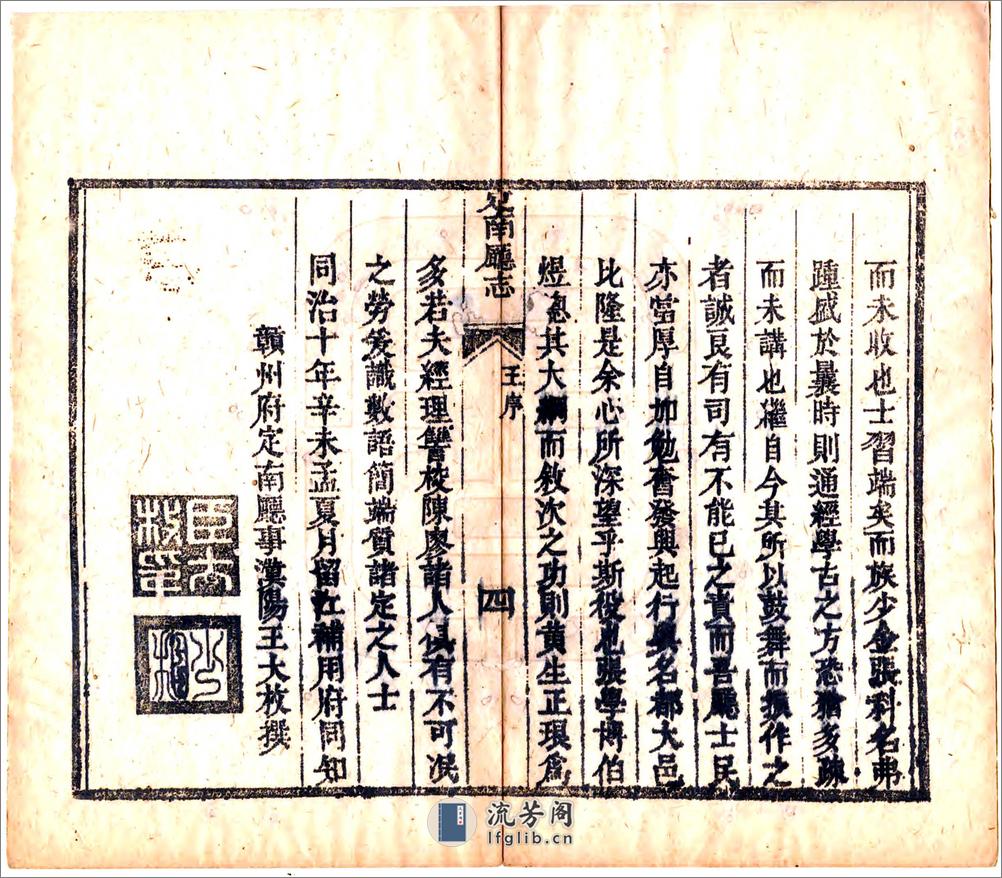 而未收也士習端矣而族少金張科名弗
踵盛於曩時則通經學古之方恐猶多疎
而未講也繼自今其所以鼓舞而振作之
者誠良有司有不能已之責而吾廳士民
亦當厚自加勉奮發興起行與名都大邑
比隆是余心所深望乎斯役也張學博伯
煜總其大綱而敘次之功則黄生正琅爲
定南廳志
王序
四
多若夫經理讐校陳廖諸人俱有不可泯
之勞爰識數語簡端質諸定之人士
同治十年辛未孟夏月留江補用府同知
贛州府定南廳事漢陽王大枚撰
臣大枚印
流芳阁
lfglib.cn